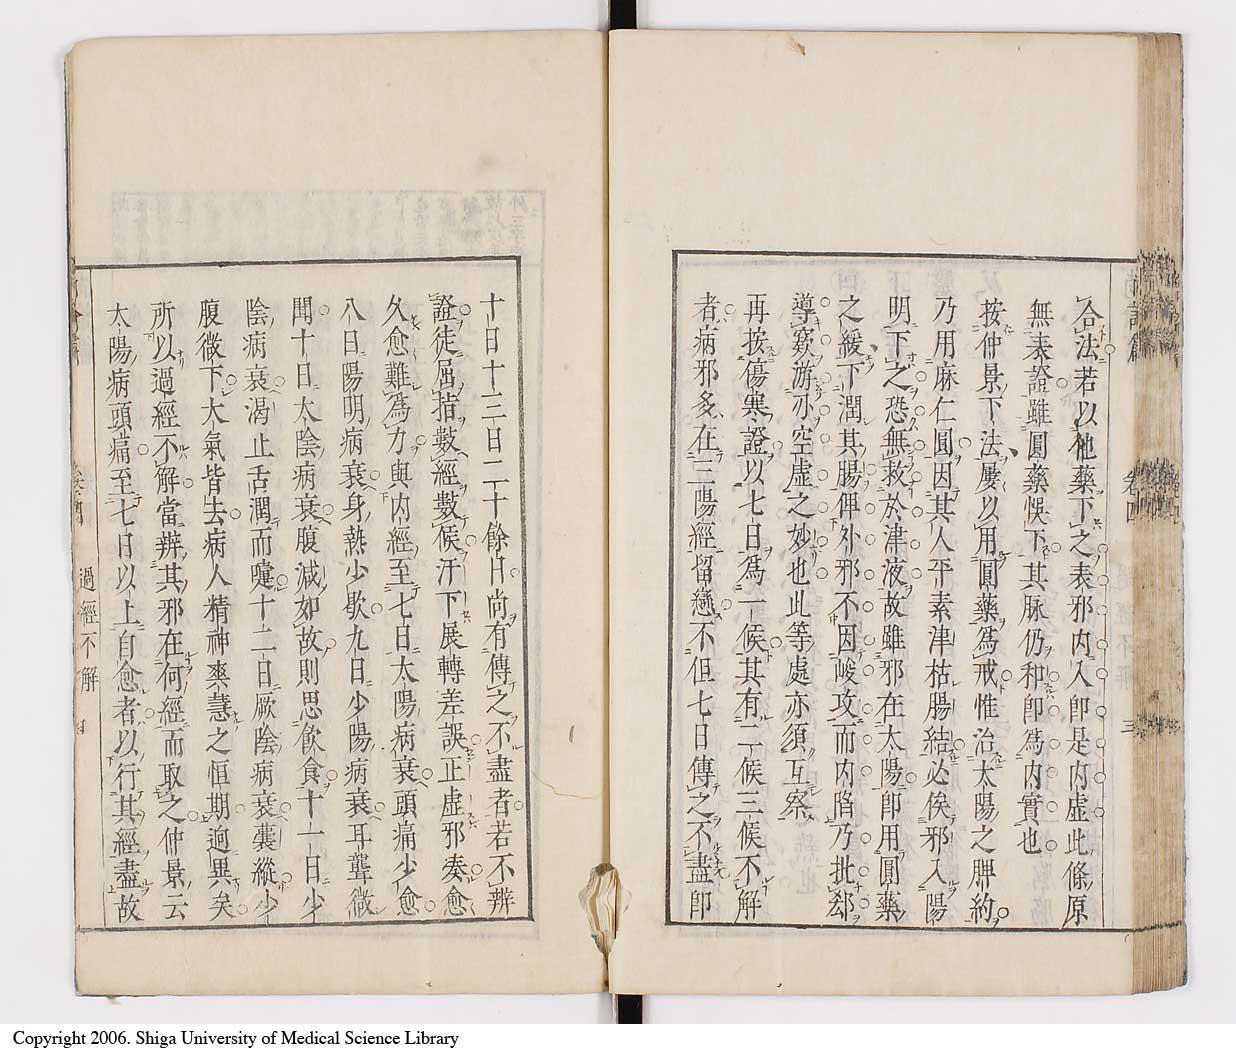 合法若以他藥下之表邪內入卽是內虛此條原
無表證雖圓藥悞下其脉仍和卽爲內實也
按仲景下法屢以用圓藥爲戒惟治太陽之脾約
乃用麻仁圓因其人平素津枯腸結必俟邪入陽
明下之恐無救於津液故雖邪在太陽卽用圓藥
之緩下潤其腸俾外邪不因峻攻而內陷乃批郄
導窾游刃空虛之妙也此等處亦須互察
再按傷寒證以七日爲一候其有二候三候不解
者病邪多在三陽經留戀不但七日傳之不盡卽
十日十三日二十餘日尚有傳之不盡者若不辨
證徒屈指數經數候汗下展轉差誤正虛邪湊愈
久愈難爲力與內經至七日太陽病衰頭痛少愈
八日陽明病衰身熱少歇九日少陽病衰耳聾微
聞十日太陰病衰腹減如故則思飲食十一日少
陰病衰渴止舌潤而嚏十二日厥陰病衰囊縱少
腹微下大氣皆去病人精神爽慧之恒期迥異矣
所以過經不解當辨其邪在何經而取之仲景云
太陽病頭痛至七日以上自愈者以行其經盡故
過經不解
Copyright 2006. Shiga University of Medical Science Library